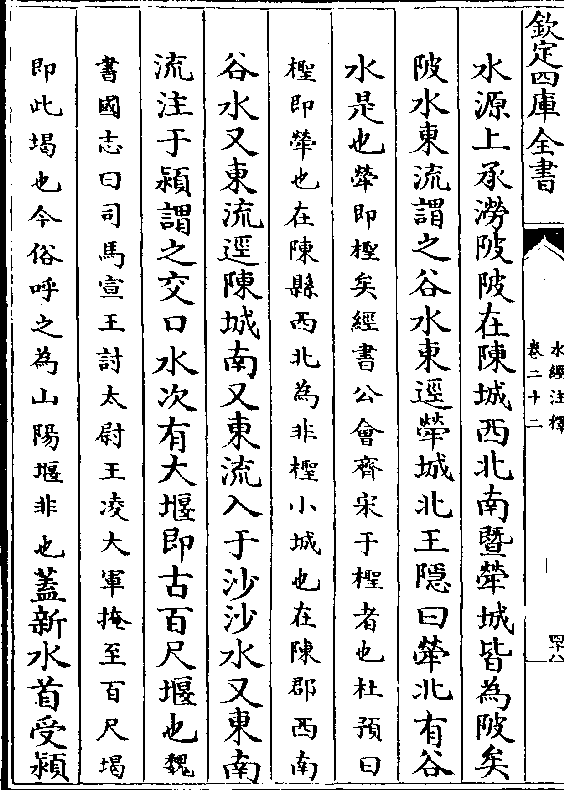 欽定四庫全書
水經注釋
卷二十二
四十八
水源上承澇陂陂在陳城西北南暨犖城皆為陂矣
陂水東流謂之谷水東逕犖城北王隱曰犖北有谷
水是也犖即檉矣經書公會齊宋于檉者也杜預曰
檉即犖也在陳縣西北為非檉小城也在陳郡西南
谷水又東流逕陳城南又東流入于沙沙水又東南
流注于潁謂之交口水次有大堰即古百尺堰也魏
書國志曰司馬宣王討太尉王凌大軍掩至百尺堨
即此堨也今俗呼之為山陽堰非也蓋新水首受潁